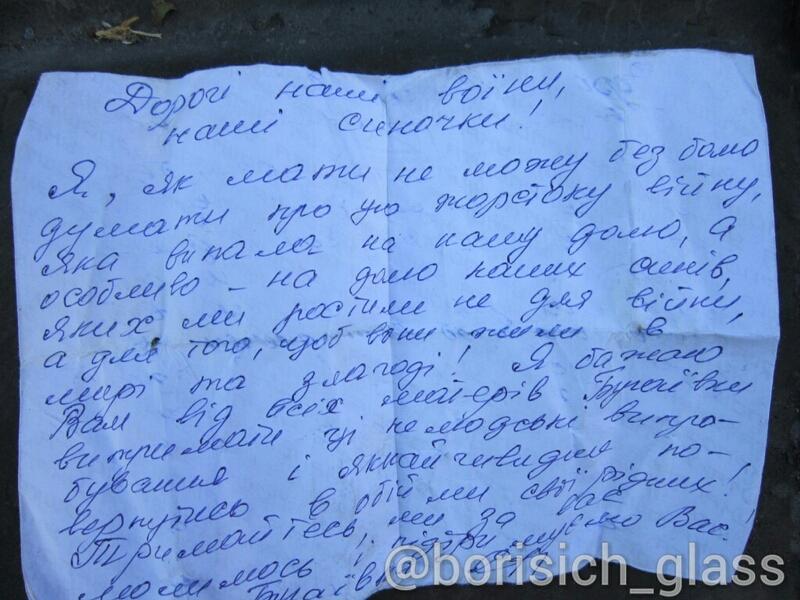 Дорогі наші воїни,
наші синочки!
Я, як мати не можу без болю
думати про цю жорстоку війну,
яка випала на нашу долю, а
особливо – на долю наших синів,
яких ми ростили не для війни,
а для того, щоб вони жили в
мирі та злагоді! Я бажаю
Вам від всіх матерів Бураївки
витримати ці нелюдські випро-
бування і якнайшвидше по-
вернутись в обійми своїх рідних!
Тримайтесь, ми за Вас
молимось і підтримуємо Вас!
@borisich_glass